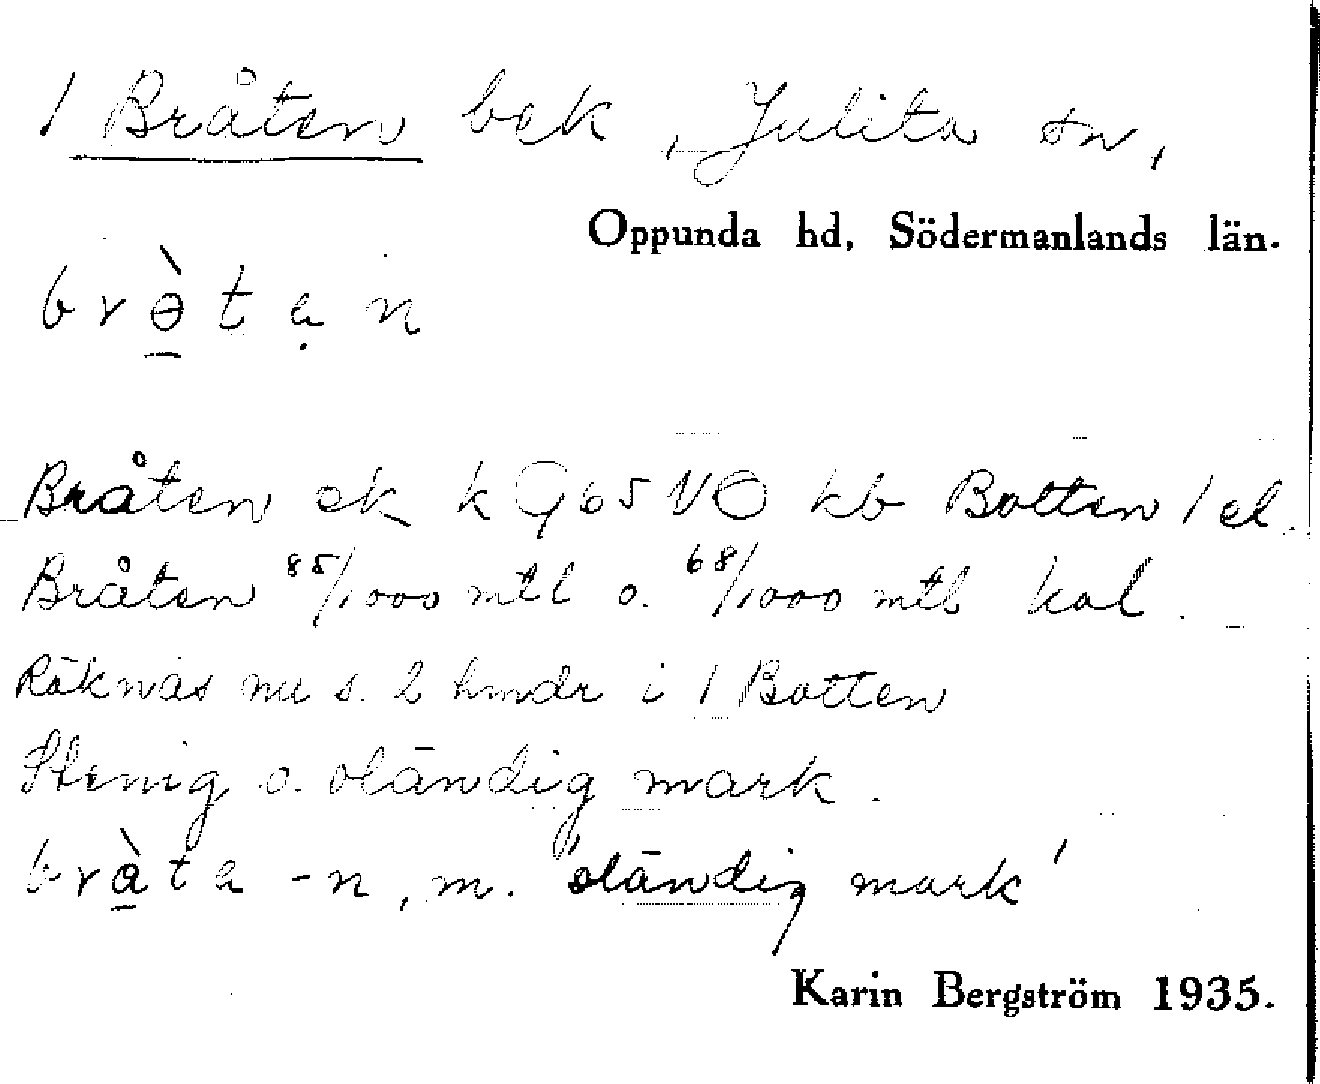 1 Bråten bek, Julita sn,
Oppunda hd, Södermanlands län.
Bråten ek k G 65 VO kb Botten 1 el.
Bråten 85/1000 mtl o. 68/1000 mtl kal
Räknas nu s. 2 hmdr i 1 Botten
Stenig o. oländig mark.
-n, m. 'oländig mark'
Karin Bergström 1935.